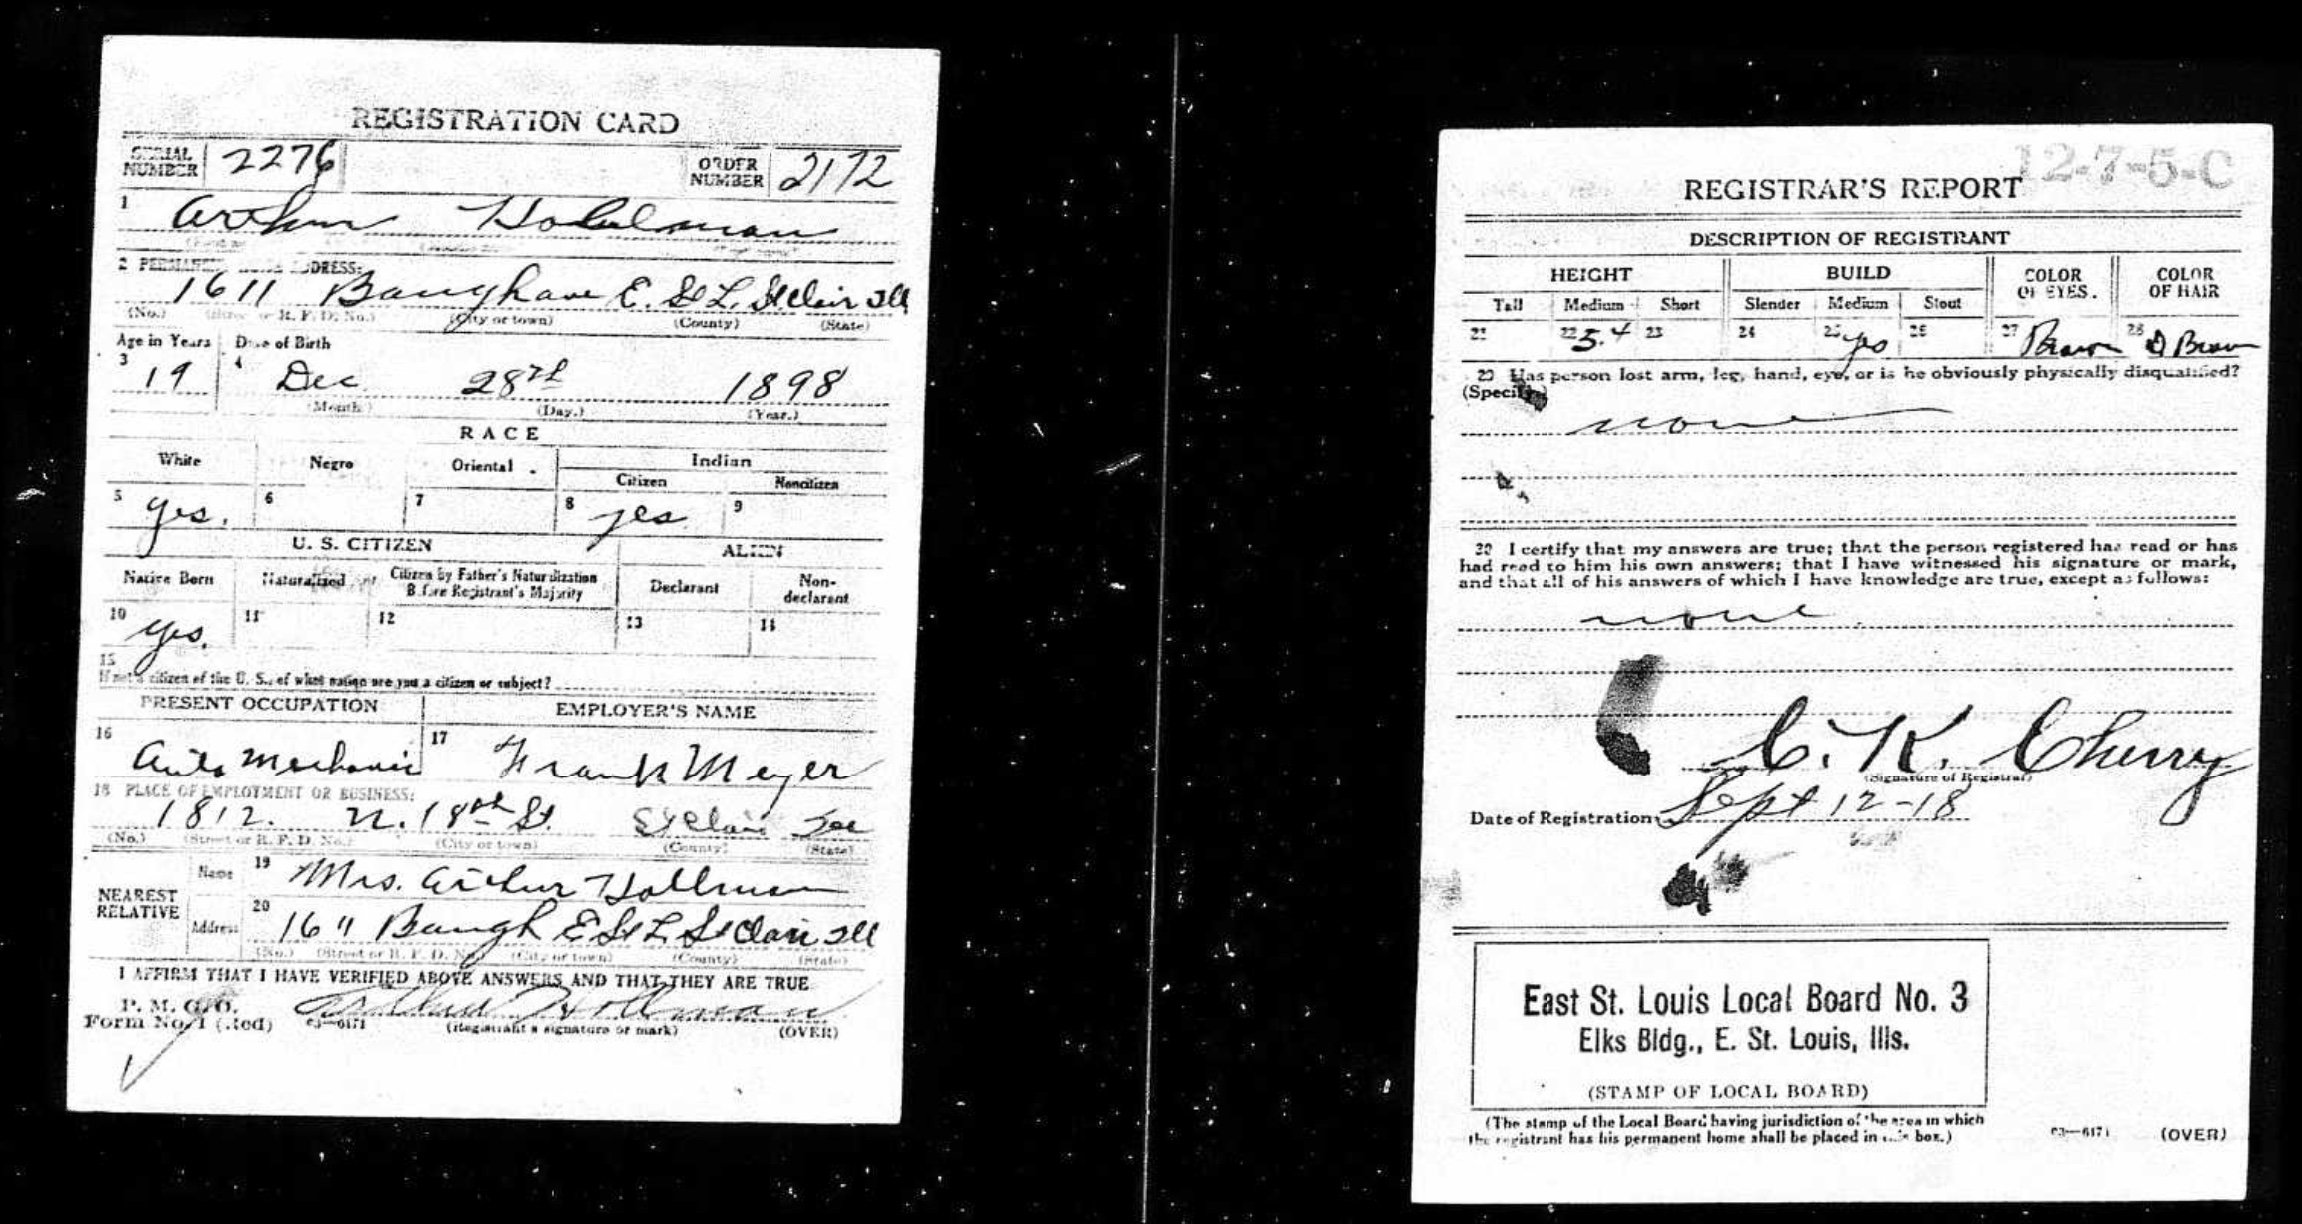 REGISTRATION CARD
SERIAL NUMBER 2276 ORDER NUMBER 2172
1 Arthur Hollman
2 PERMANENT HOME ADDRESS:
1611 Baugh ave E. St L. St Clair Ill
(No.) (Street or R. F. D. No.) (City or town) (County) (State)
Age in Years Date of Birth
3 19 4 Dec 28th 1898
(Month.) (Day.) (Year.)
RACE
White Negro Oriental Indian
Citizen Noncitizen
5 yes. 6 7 8 yes 9
U. S. CITIZEN ALIEN
Native Born Naturalized Citizen by Father's Naturalization Before Registrant's Majority Declarant Non-declarant
10 yes. 11 12 13 14
15
If not a citizen of the U. S., of what nation are you a citizen or subject?
PRESENT OCCUPATION EMPLOYER'S NAME
16 Auto Mechanic 17 Frank Meyer
18 PLACE OF EMPLOYMENT OR BUSINESS:
1812. N. 18th St. St Clair Ill
(No.) (Street or R. F. D. No.) (City or town) (County) (State)
NEAREST RELATIVE
Name 19 Mrs. Arthur Hollman
Address 20 1611 Baugh E St L St Clair Ill
(No.) (Street or R. F. D. No.) (City or town) (County) (State)
I AFFIRM THAT I HAVE VERIFIED ABOVE ANSWERS AND THAT THEY ARE TRUE
P. M. G. O.
Form No. 1 (Red) 03—6171 Arthur Hollman
(Registrant's signature or mark) (OVER)
12-7-5-C
REGISTRAR'S REPORT
DESCRIPTION OF REGISTRANT
HEIGHT BUILD COLOR OF EYES. COLOR OF HAIR
Tall Medium Short Slender Medium Stout
21 22 5.4 23 24 25 yes 26 27 Brown 28 D Brown
29 Has person lost arm, leg, hand, eye, or is he obviously physically disqualified?
(Specify.)
none
30 I certify that my answers are true; that the person registered has read or has
had read to him his own answers; that I have witnessed his signature or mark,
and that all of his answers of which I have knowledge are true, except as follows:
none
C. K. Cherry
(Signature of Registrar)
Date of Registration Sept 12-18
East St. Louis Local Board No. 3
Elks Bldg., E. St. Louis, Ills.
(STAMP OF LOCAL BOARD)
(The stamp of the Local Board having jurisdiction of the area in which
the registrant has his permanent home shall be placed in this box.)
03—6171 (OVER)